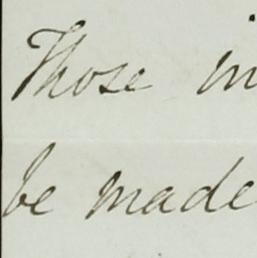 Those in
be made